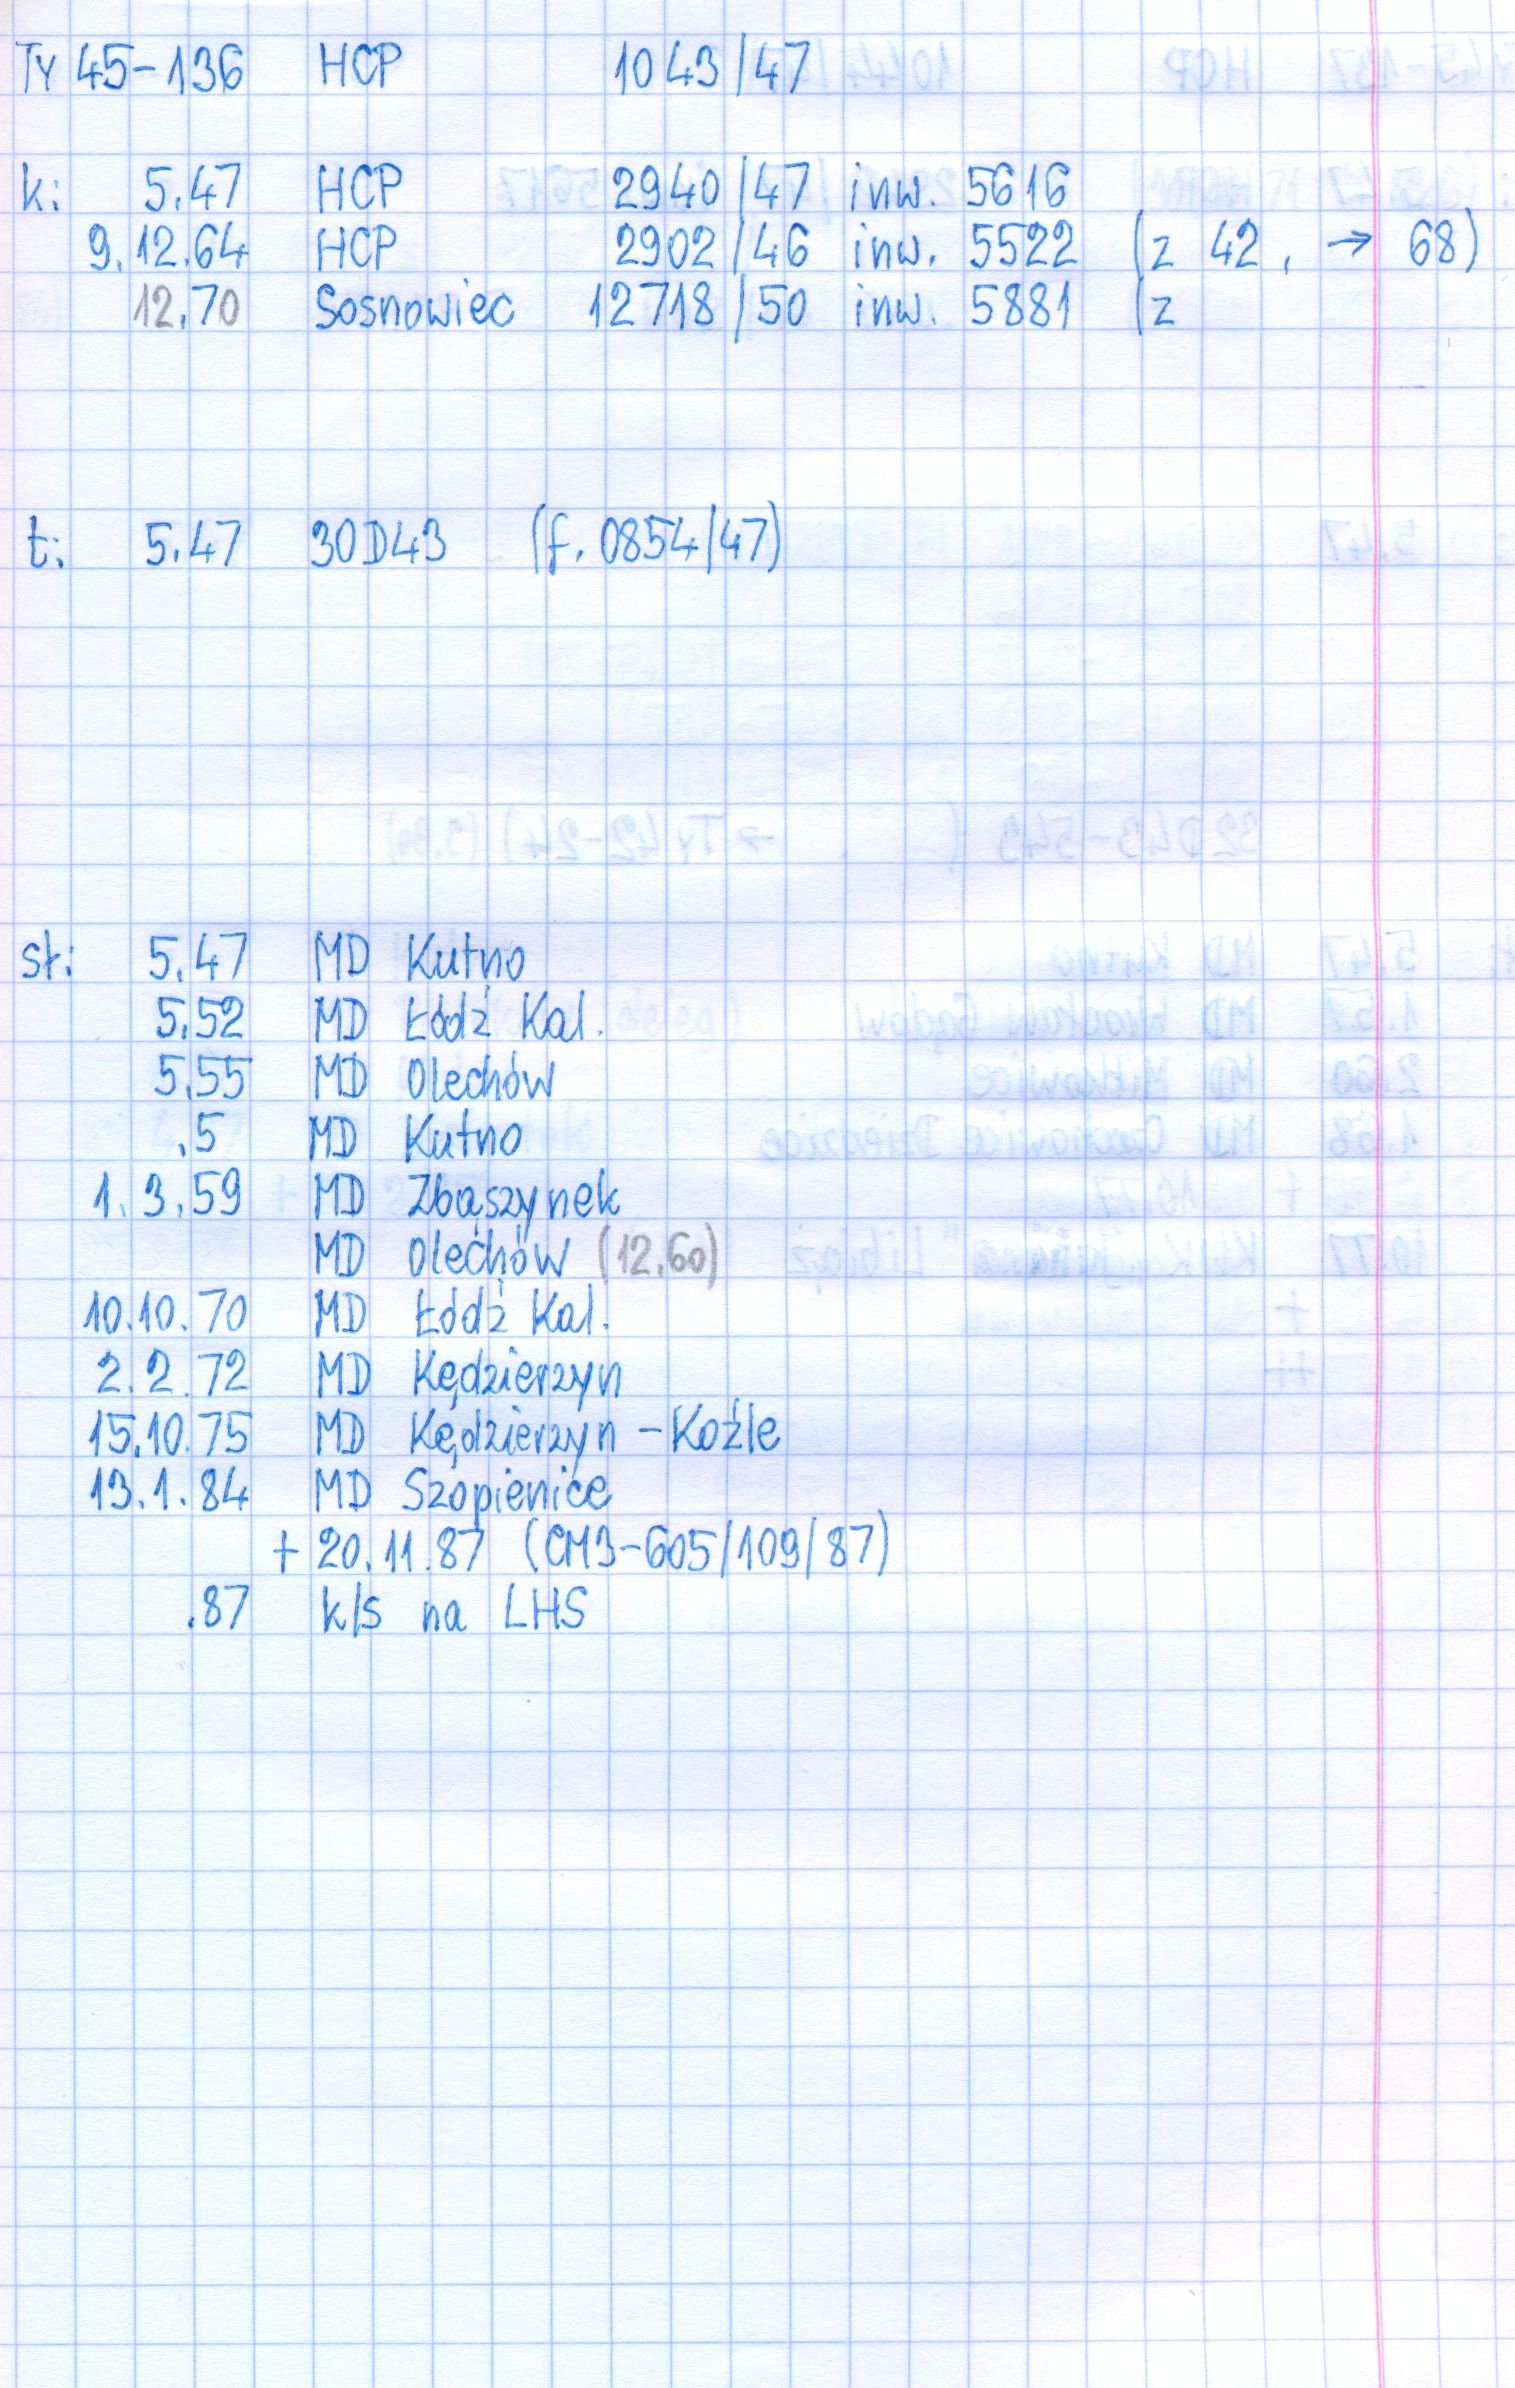 Ty 45-136 HCP 1043/47
k: 5.47 HCP 2940/47 inw. 5616
9.12.64 HCP 2902/46 inw. 5522 (z 42, → 68)
12.70 Sosnowiec 12718/50 inw. 5881 (z
t: 5.47 30D43 (f. 0854/47)
sł: 5.47 MD Kutno
5.52 MD Łódź Kal.
5.55 MD Olechów
.5 MD Kutno
1.3.59 MD Zbąszynek
MD Olechów (12.60)
10.10.70 MD Łódź Kal.
2.2.72 MD Kędzierzyn
15.10.75 MD Kędzierzyn-Koźle
13.1.84 MD Szopienice
+ 20.11.87 (CM3-605/109/87)
.87 k/s na LHS